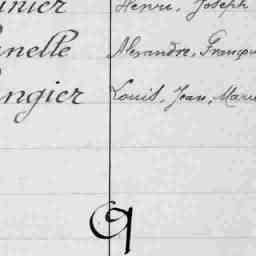 Henri, Joseph
nelle Alexandre, Franço
ngier Louis, Jean, Marie